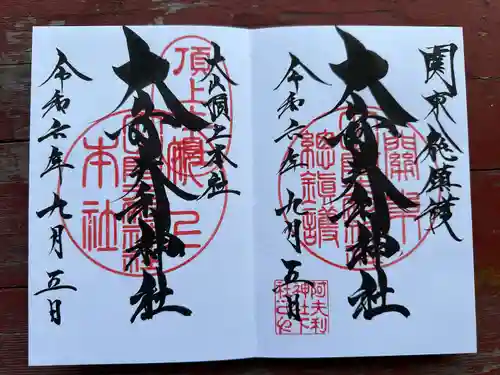 関東総鎮護
大山阿夫利神社
令和六年九月五日
大山頂上本社
大山阿夫利神社
令和六年九月五日
頂上
本社
関東
総鎮護
阿夫利
神社下
社之印